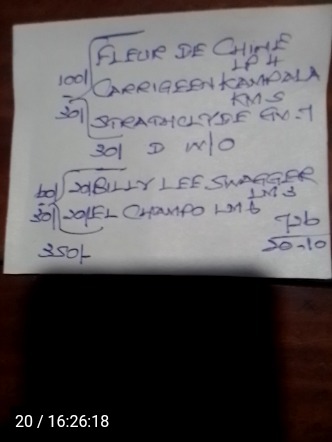 FLEUR DE CHINE
LP 4
100/ CARRIGEEN KAMPALA
KMS
30/ STRATHCLYDE GM-7
30/ D W/O
60/ 20/ BILLY LEE SWAGGER
LM 3
30/ 20/ EL CHAMPO LM 6
726
350/- 20-10
20 / 16:26:18